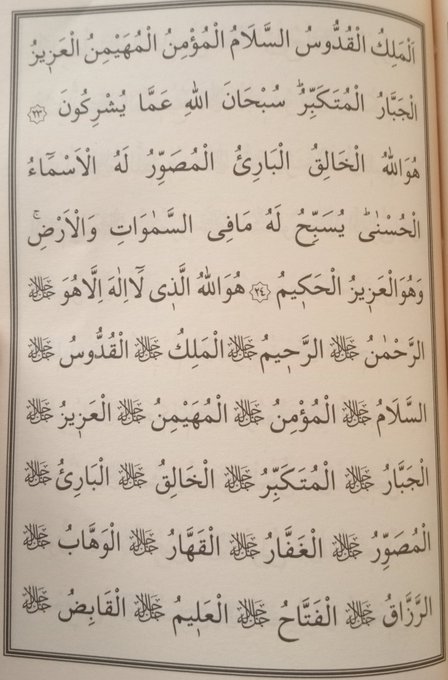 اَلْمَلِكُ الْقُدُّوسُ السَّلَامُ الْمُؤْمِنُ الْمُهَيْمِنُ الْعَزٖيزُ
الْجَبَّارُ الْمُتَكَبِّرُۜ سُبْحَانَ اللهِ عَمَّا يُشْرِكُونَ ﴿٢٣﴾
هُوَ اللهُ الْخَالِقُ الْبَارِئُ الْمُصَوِّرُ لَهُ الْاَسْمَٓاءُ
الْحُسْنٰىۜ يُسَبِّحُ لَهُ مَا فِى السَّمٰوَاتِ وَالْاَرْضِۚ
وَهُوَ الْعَزٖيزُ الْحَكٖيمُ ﴿٢٤﴾ هُوَ اللهُ الَّذٖى لَٓا اِلٰهَ اِلَّا هُوَ ﷻ
الرَّحْمٰنُ ﷻ الرَّحٖيمُ ﷻ الْمَلِكُ ﷻ الْقُدُّوسُ ﷻ
السَّلَامُ ﷻ الْمُؤْمِنُ ﷻ الْمُهَيْمِنُ ﷻ الْعَزٖيزُ ﷻ
الْجَبَّارُ ﷻ الْمُتَكَبِّرُ ﷻ الْخَالِقُ ﷻ الْبَارِئُ ﷻ
الْمُصَوِّرُ ﷻ الْغَفَّارُ ﷻ الْقَهَّارُ ﷻ الْوَهَّابُ ﷻ
الرَّزَّاقُ ﷻ الْفَتَّاحُ ﷻ الْعَلٖيمُ ﷻ الْقَابِضُ ﷻ